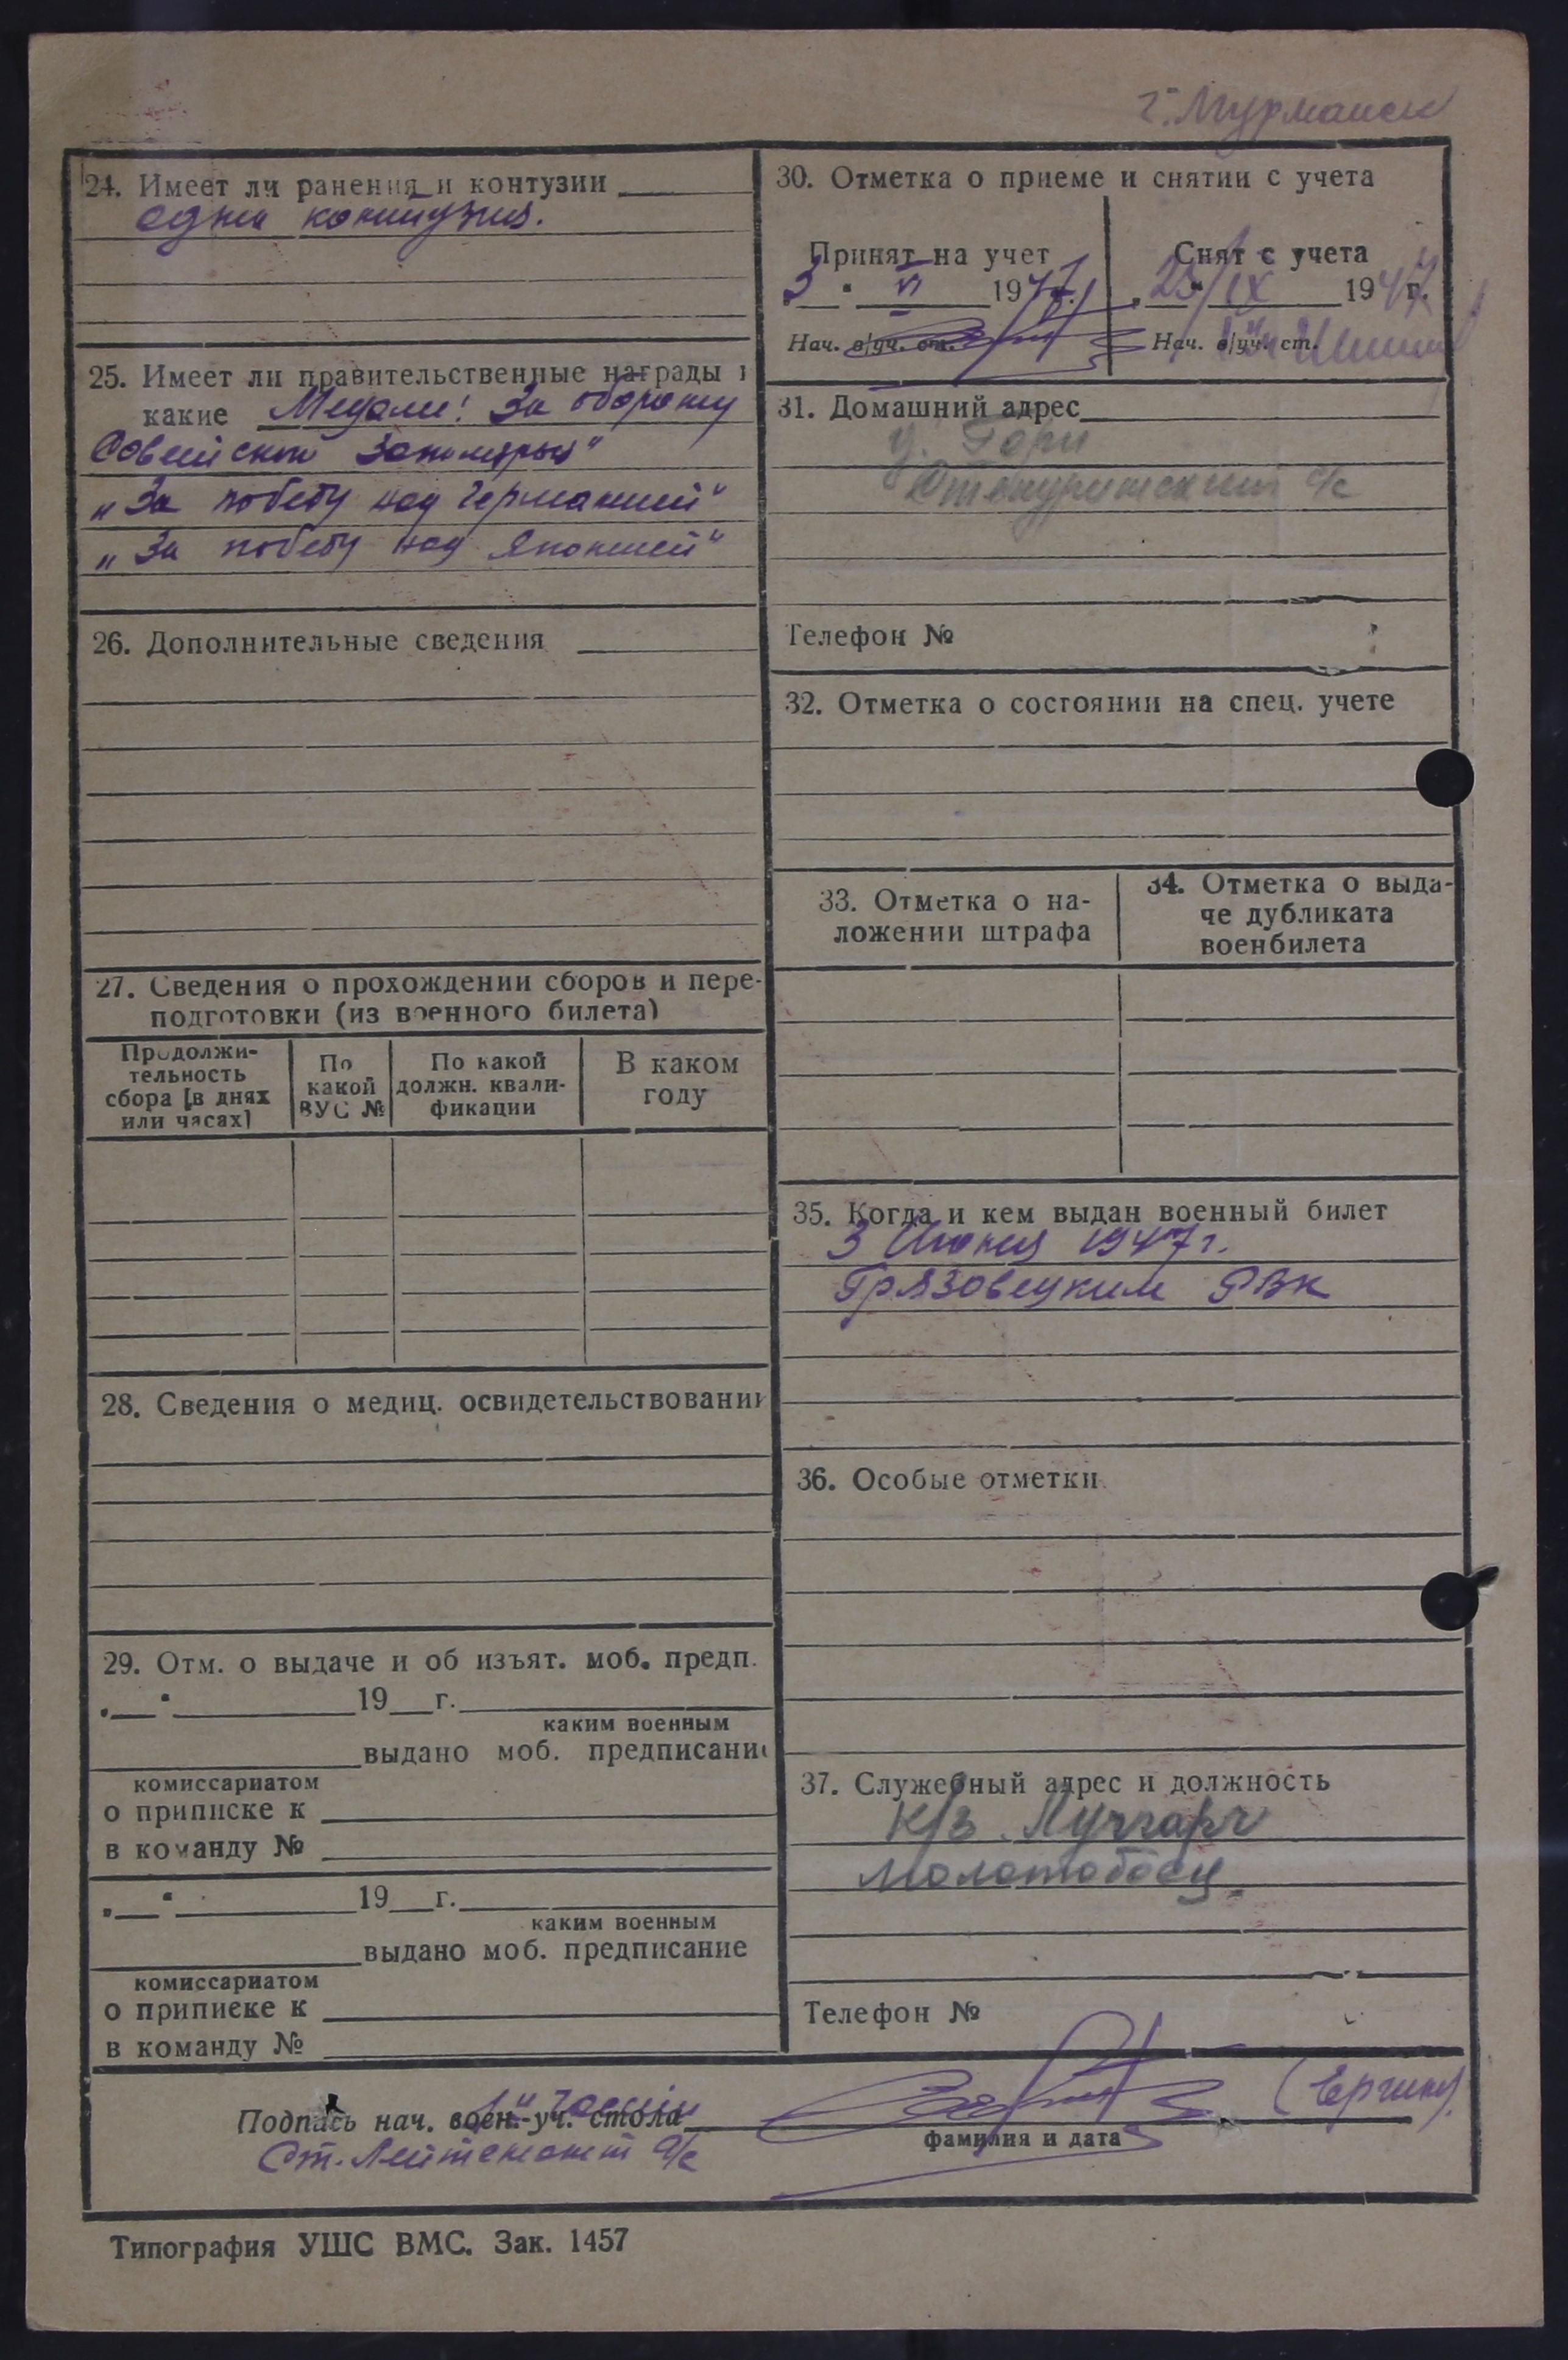 г. Мурманск
24. Имеет ли ранения и контузии
одна контузия.
25. Имеет ли правительственные награды и
какие Медали: За оборону
Советского Заполярья"
„За победу над Германией"
„За победу над Японией"
26. Дополнительные сведения
27. Сведения о прохождении сборов и пере-
подготовки (из военного билета)
Продолжи-
тельность
сбора [в днях
или часах]
По
какой
ВУС №
По какой
должн. квали-
фикации
В каком
году
28. Сведения о медиц. освидетельствовании
29. Отм. о выдаче и об изъят. моб. предп.
19 г.
каким военным
выдано моб. предписание
комиссариатом
о приписке к
в команду №
19 г.
каким военным
выдано моб. предписание
комиссариатом
о приписке к
в команду №
30. Отметка о приеме и снятии с учета
Принят на учет
3 VI 1947 г.
Нач. в/уч. ст.
Снят с учета
23/IX 1947 г.
Нач. в/уч. ст.
31. Домашний адрес
с/с
Телефон №
32. Отметка о состоянии на спец. учете
33. Отметка о на-
ложении штрафа
34. Отметка о выда-
че дубликата
военбилета
35. Когда и кем выдан военный билет
3 Июня 1947 г.
Грязовецким РВК
36. Особые отметки
37. Служебный адрес и должность
К/з
Молотобоец.
Телефон №
Подпись нач. воен.-уч. стола
фамилия и дата
Ст. Лейтенант а/с
Типография УШС ВМС. Зак. 1457